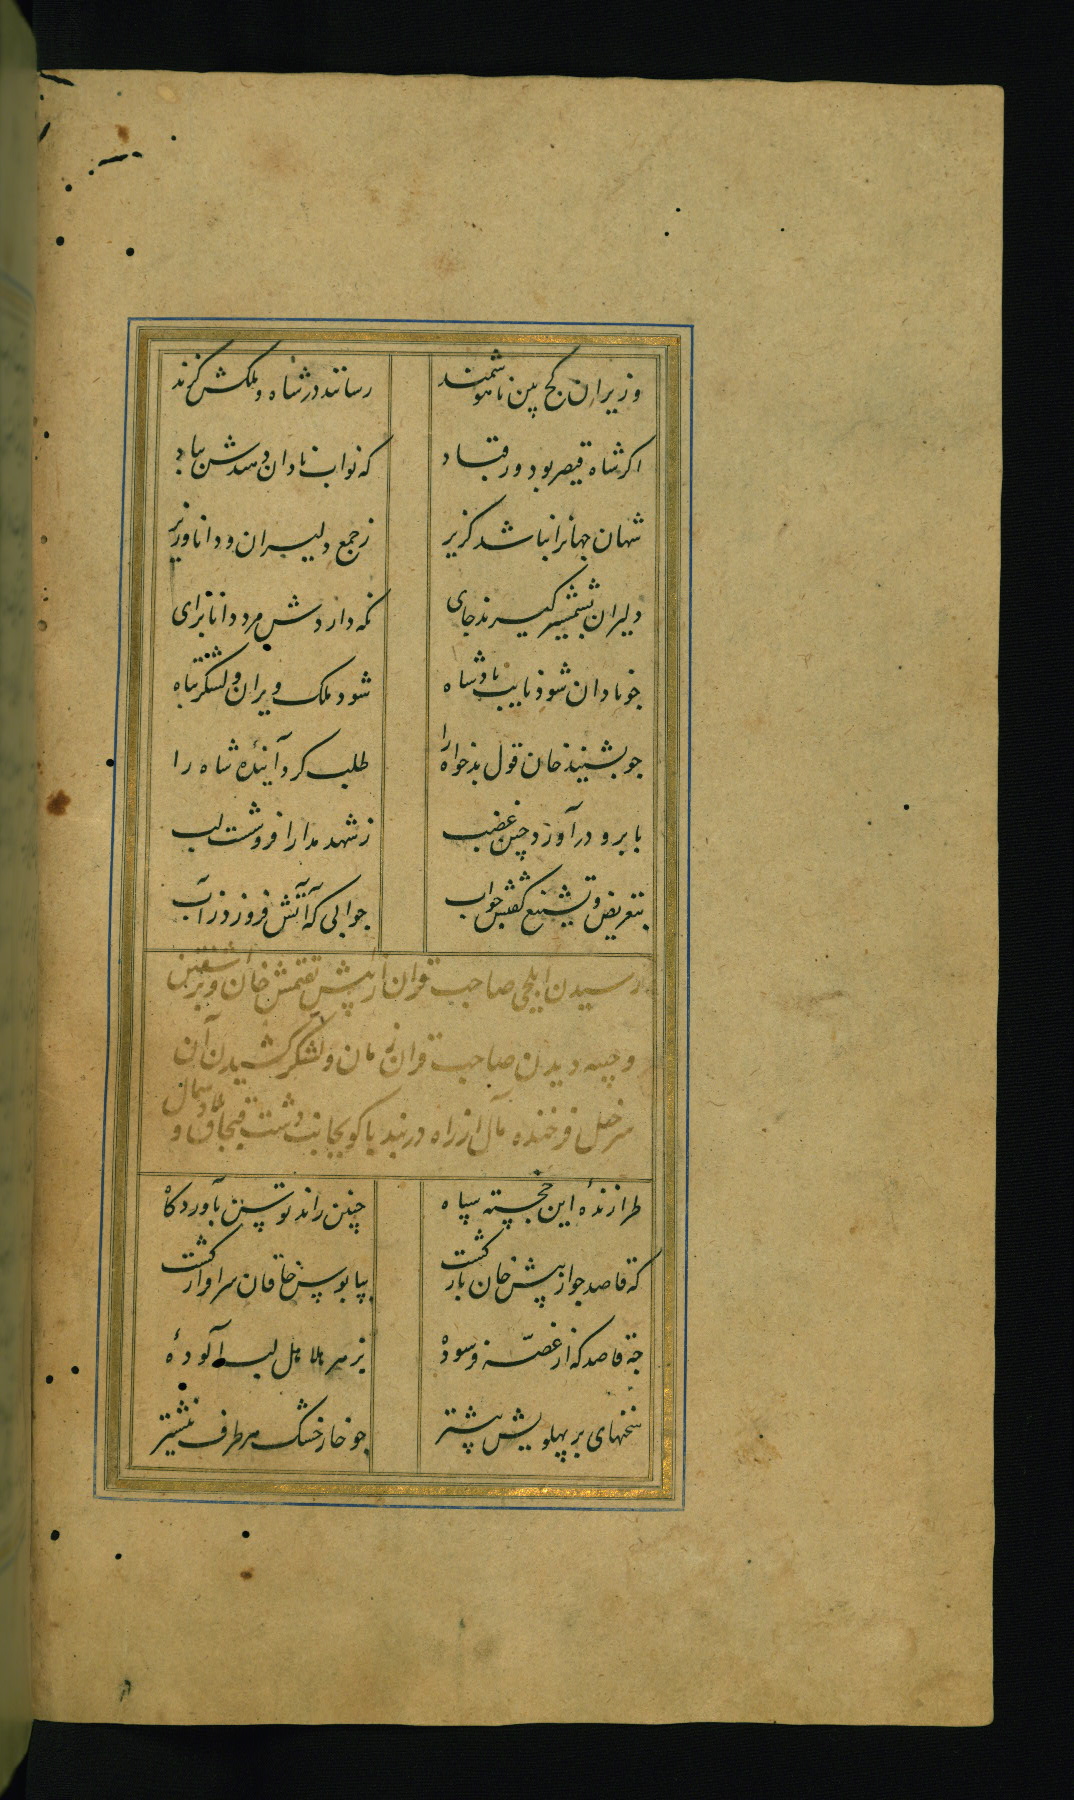 وزیران کج بین ناهوشمند رسانند در شاه و ملکش گزند
اکر شاه قیصر بود ور قباد که نواب نادان دهندش بباد
شهان جهانرا نباشد کزیر ز جمع دلیران و دانا وزیر
دلیران بشمشیر کیرند جای نکه داردش مرد دانا برای
جو نادان شود نایب پادشاه شود ملک ویران و لشکر تباه
جو بشنید خان قول بدخواه را طلب کرد آینده شاه را
بابرو درآورد چین غضب ز شهد مدارا فروشست لب
بتعریض و تشنیع گفتش جواب جوابی که آتش فروزد ز آب
رسیدن ایلچی صاحب قران از پیش تقتمش خان
و جیبه دیدن صاحب قران زمان و لشکر کشیدن آن
سرخیل فرخنده مآل از راه دربند باکو بجانب دشت قبجاق و
طرازنده این خجسته سپاه چنین راند توسن بآوردکاه
که قاصد جو از پیش خان بازکشت بپابوس خاقان سرافراز کشت
چه قاصد که از غصه فرسوده بزهر هلاهل لب آلوده
سخنهای بر پهلویش بیشتر جو خار خسک هر طرف نیشتر